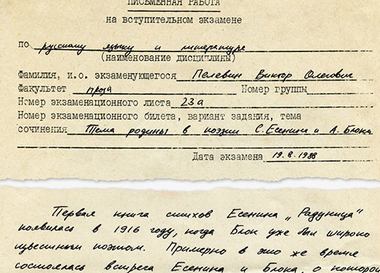 ПИСЬМЕННАЯ РАБОТА
на вступительном экзамене
по русскому языку и литературе
(наименование дисциплины)
Фамилия, и.о. экзаменующегося Пелевин Виктор Олегович
Факультет проза Номер группы
Номер экзаменационного листа 23а
Номер экзаменационного билета, вариант задания, тема
сочинения Тема родины в поэзии С.Есенина и А.Блока.
Дата экзамена 19.8.1988
Первая книга стихов Есенина „Радуница"
появилась в 1916 году, когда Блок уже был широко
известным поэтом. Примерно в это же время
состоялась встреча Есенина и Блока, о которой